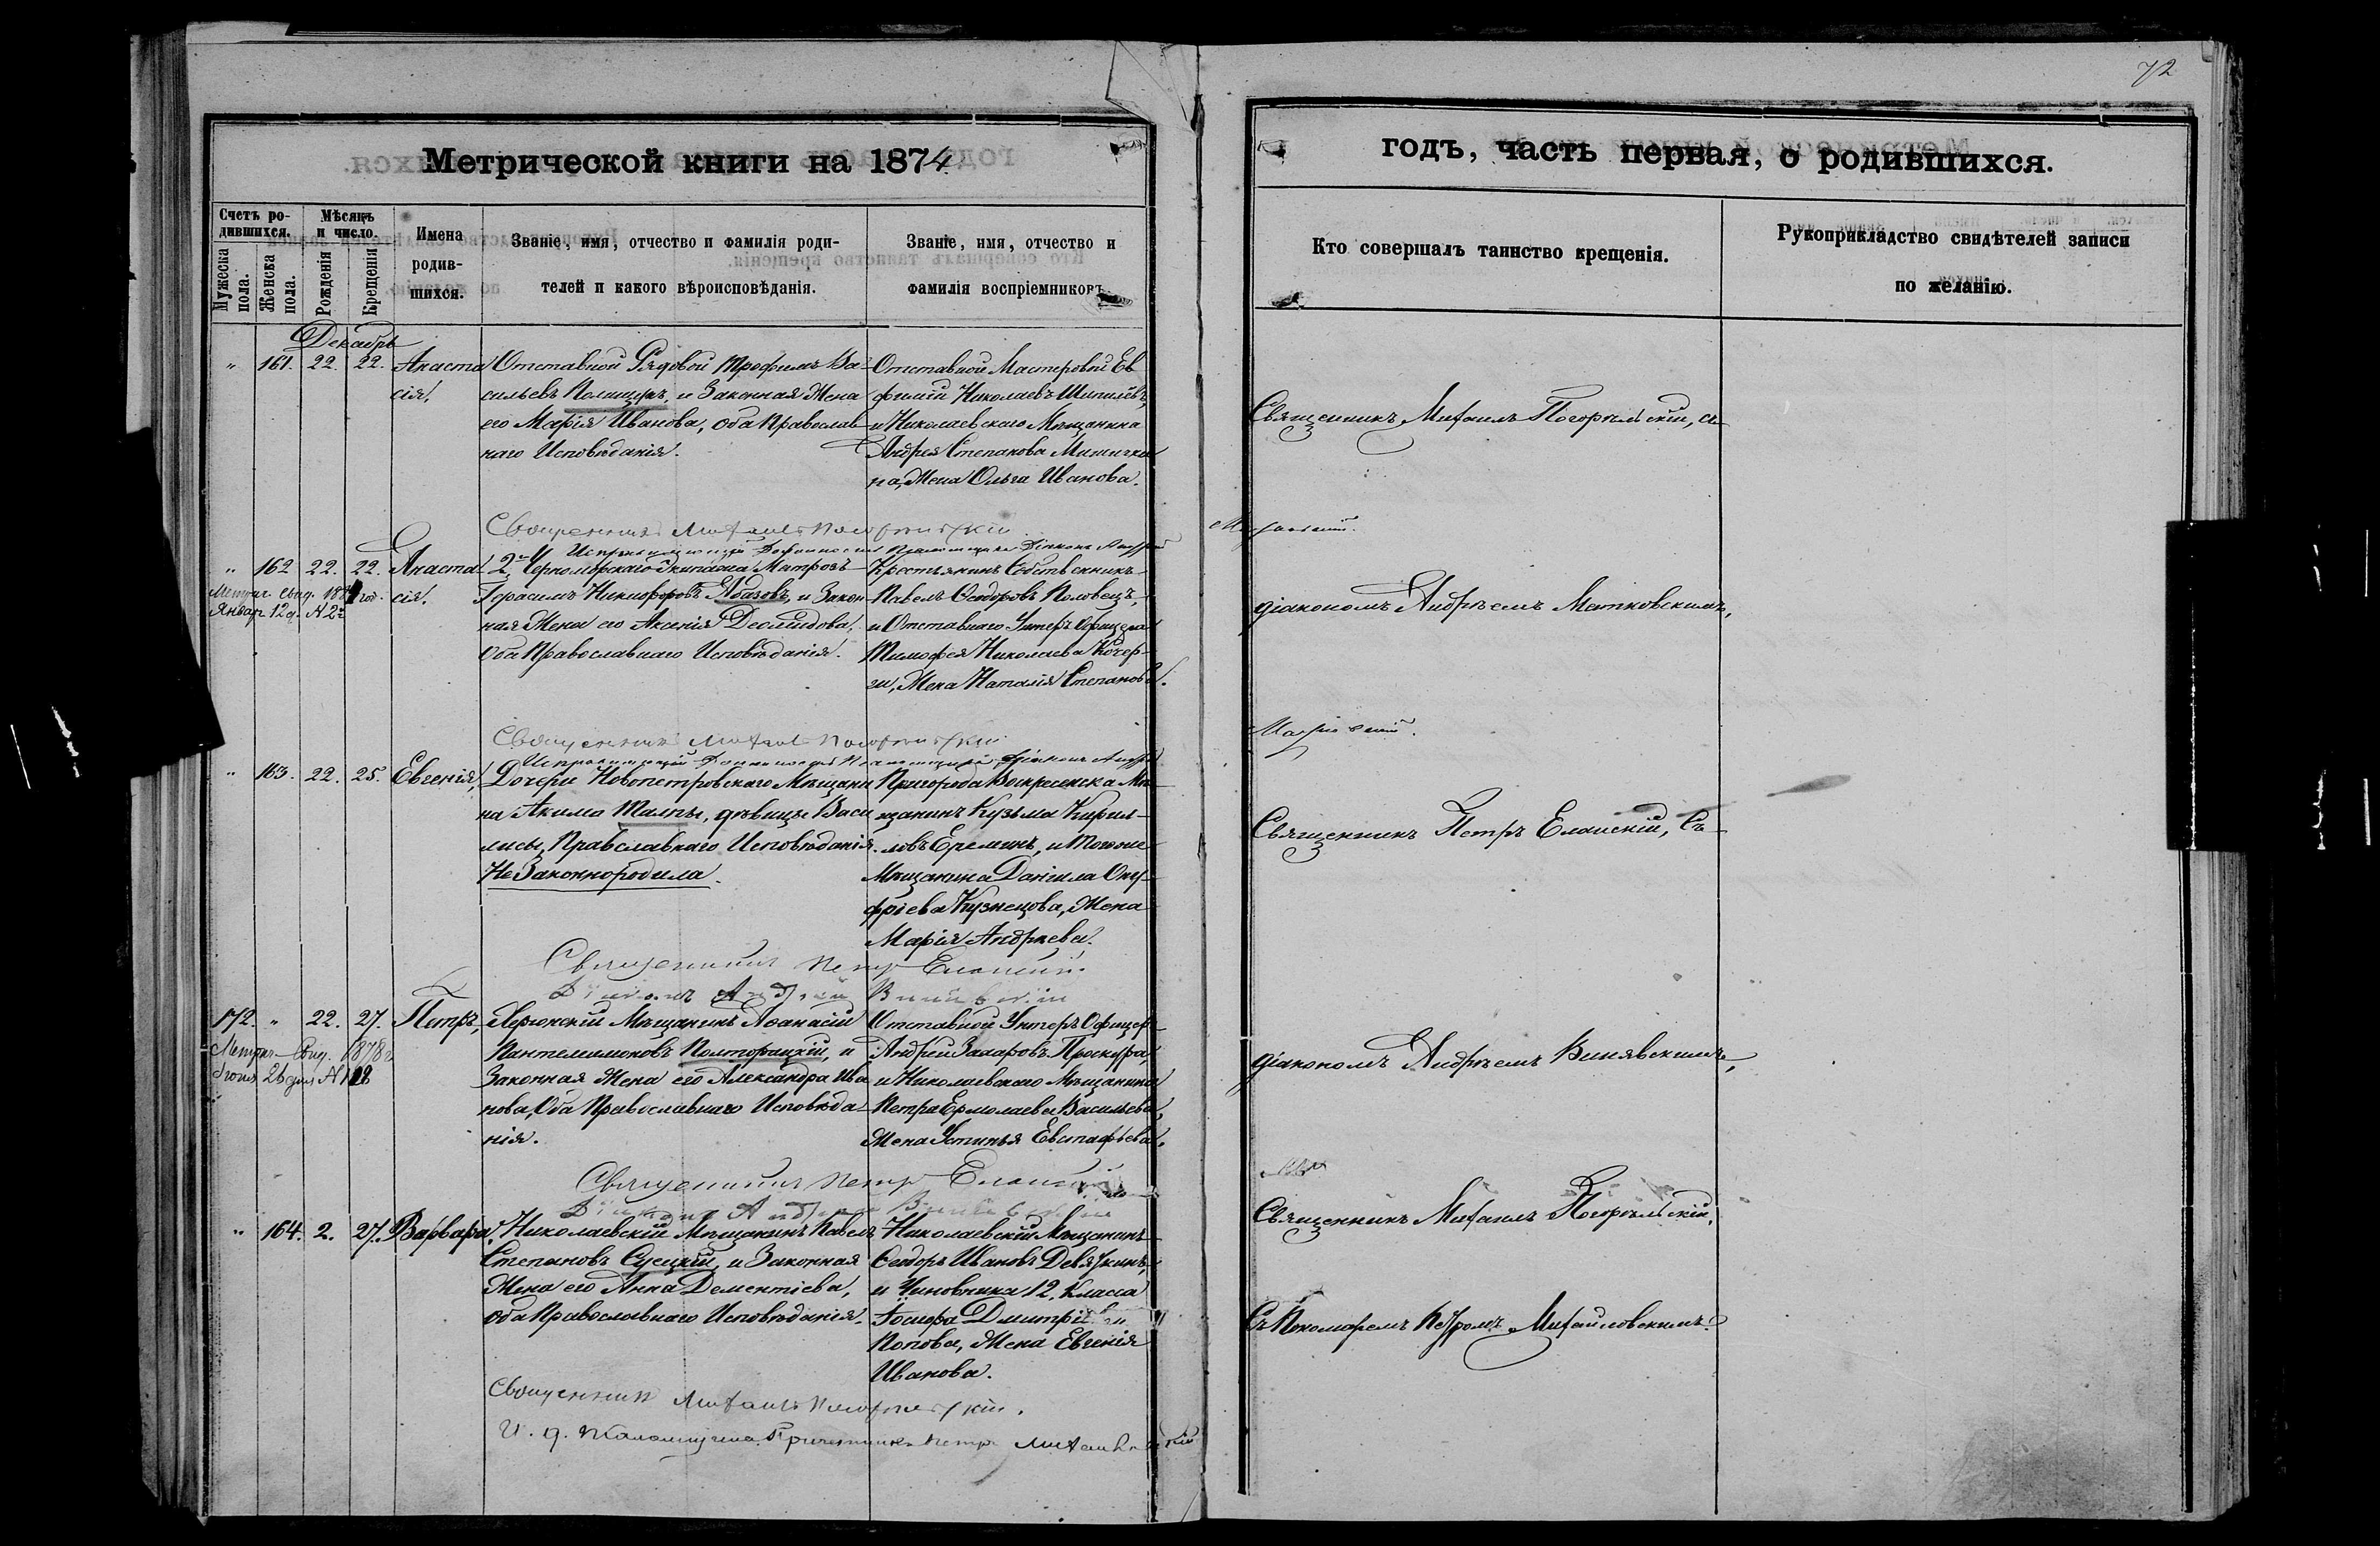 72
Метрической книги на 1874
годъ, часть первая, о родившихся.
Счетъ ро-
дившихся.
Мѣсяцъ
и число.
Мужеска
пола.
Женска
пола.
Рожденія
Крещенія
Имена
родив-
шихся.
Званіе, имя, отчество и фамилія роди-
телей и какого вѣроисповѣданія.
Званіе, имя, отчество и
фамилія воспріемниковъ
Кто совершалъ таинство крещенія.
Рукоприкладство свидѣтелей записи
по желанію.
Декабрь
" 161. 22. 22. Анаста
сія,
Отставной Рядовой Трофимъ Ва-
сильевъ Полищукъ, и Законная Жена
его Марія Иванова, Оба Православ-
наго Исповѣданія.
Отставной Мастеровой Ев
фимій Николаевъ
и Николаевскаго Мѣщанина
Андрея Степанова
на, Жена Ольга Иванова.
Священникъ Михаилъ Погорѣльскій, съ
Священникъ Михаилъ Погорѣльскій
Исправляющій Должность Псаломщика Діаконъ Андрей
" 162 22. 22. Анаста
сія.
Метрич. свид. 187 год.
Январ. 12 д. N 2й
2го Черноморскаго Экипажа Матрозъ
Герасимъ Никифоровъ Абазовъ, и Закон
ная Жена его Аксенія Деомидова,
Оба Православнаго Исповѣданія.
Крестьянинъ Собственникъ
Павелъ Ѳеодоровъ Половецъ,
и Отставнаго Унтеръ Офицера
Тимофея Николаева Кочер-
ги, Жена Наталія Степанова.
діакономъ Андреемъ Матковскимъ,
Священникъ Михаилъ Погорѣльскій
Исправляющій Должность Псаломщика Діаконъ Андрей
" 163. 22. 25. Евгенія,
Дочери Новопетровскаго Мѣщани
на Акима Талпы, дѣвицы Васи
лисы, Православнаго Исповѣданія.
НеЗаконнородила.
Пригорода Воскресенска Мѣ-
щанинъ Кузьма Кирил-
ловъ Ереминъ, и Тогоже
Мѣщанина Даніила Ону-
фріева Кузнецова, Жена
Марія Андреева.
Священникъ Петръ Еланскій, Съ
Священникъ Петръ Еланскій.
Діаконъ Андрей Винявскій
172. " 22. 27. Петръ,
Метрич. Свид. 1878 г
Іюня 26 дня N
Херсонскій Мѣщанинъ Аѳанасій
Пантелимоновъ Полторацкій, и
Законная Жена его Александра Ива
нова, Оба Православнаго Исповѣда-
нія.
Отставной Унтеръ Офицеръ
Андрей Захаровъ Проскура,
и Николаевскаго Мѣщанина
Петра Ермолаева Васильева,
Жена Устинья Евстафьева.
діакономъ Андреемъ Винявскимъ,
Священникъ Петръ Еланскій
Діаконъ Андрей Винявскій
" 164. 2. 27. Варвара,
Николаевскій Мѣщанинъ Павелъ
Степановъ Суецкій, и Законная
Жена его Анна Дементіева,
Оба Православнаго Исповѣданія.
Николаевскій Мѣщанинъ
Ѳеодоръ Ивановъ Девяткинъ,
и Чиновника 12. Класса
Іосифа Дмитріева
Попова, Жена Евгенія
Иванова.
Священникъ Михаилъ Погорѣльскій,
Съ Пономаремъ Петромъ Михайловскимъ.
Священникъ Михаилъ Погорѣльскій.
И. д. Псаломщика Причетникъ Петръ Михайловскій